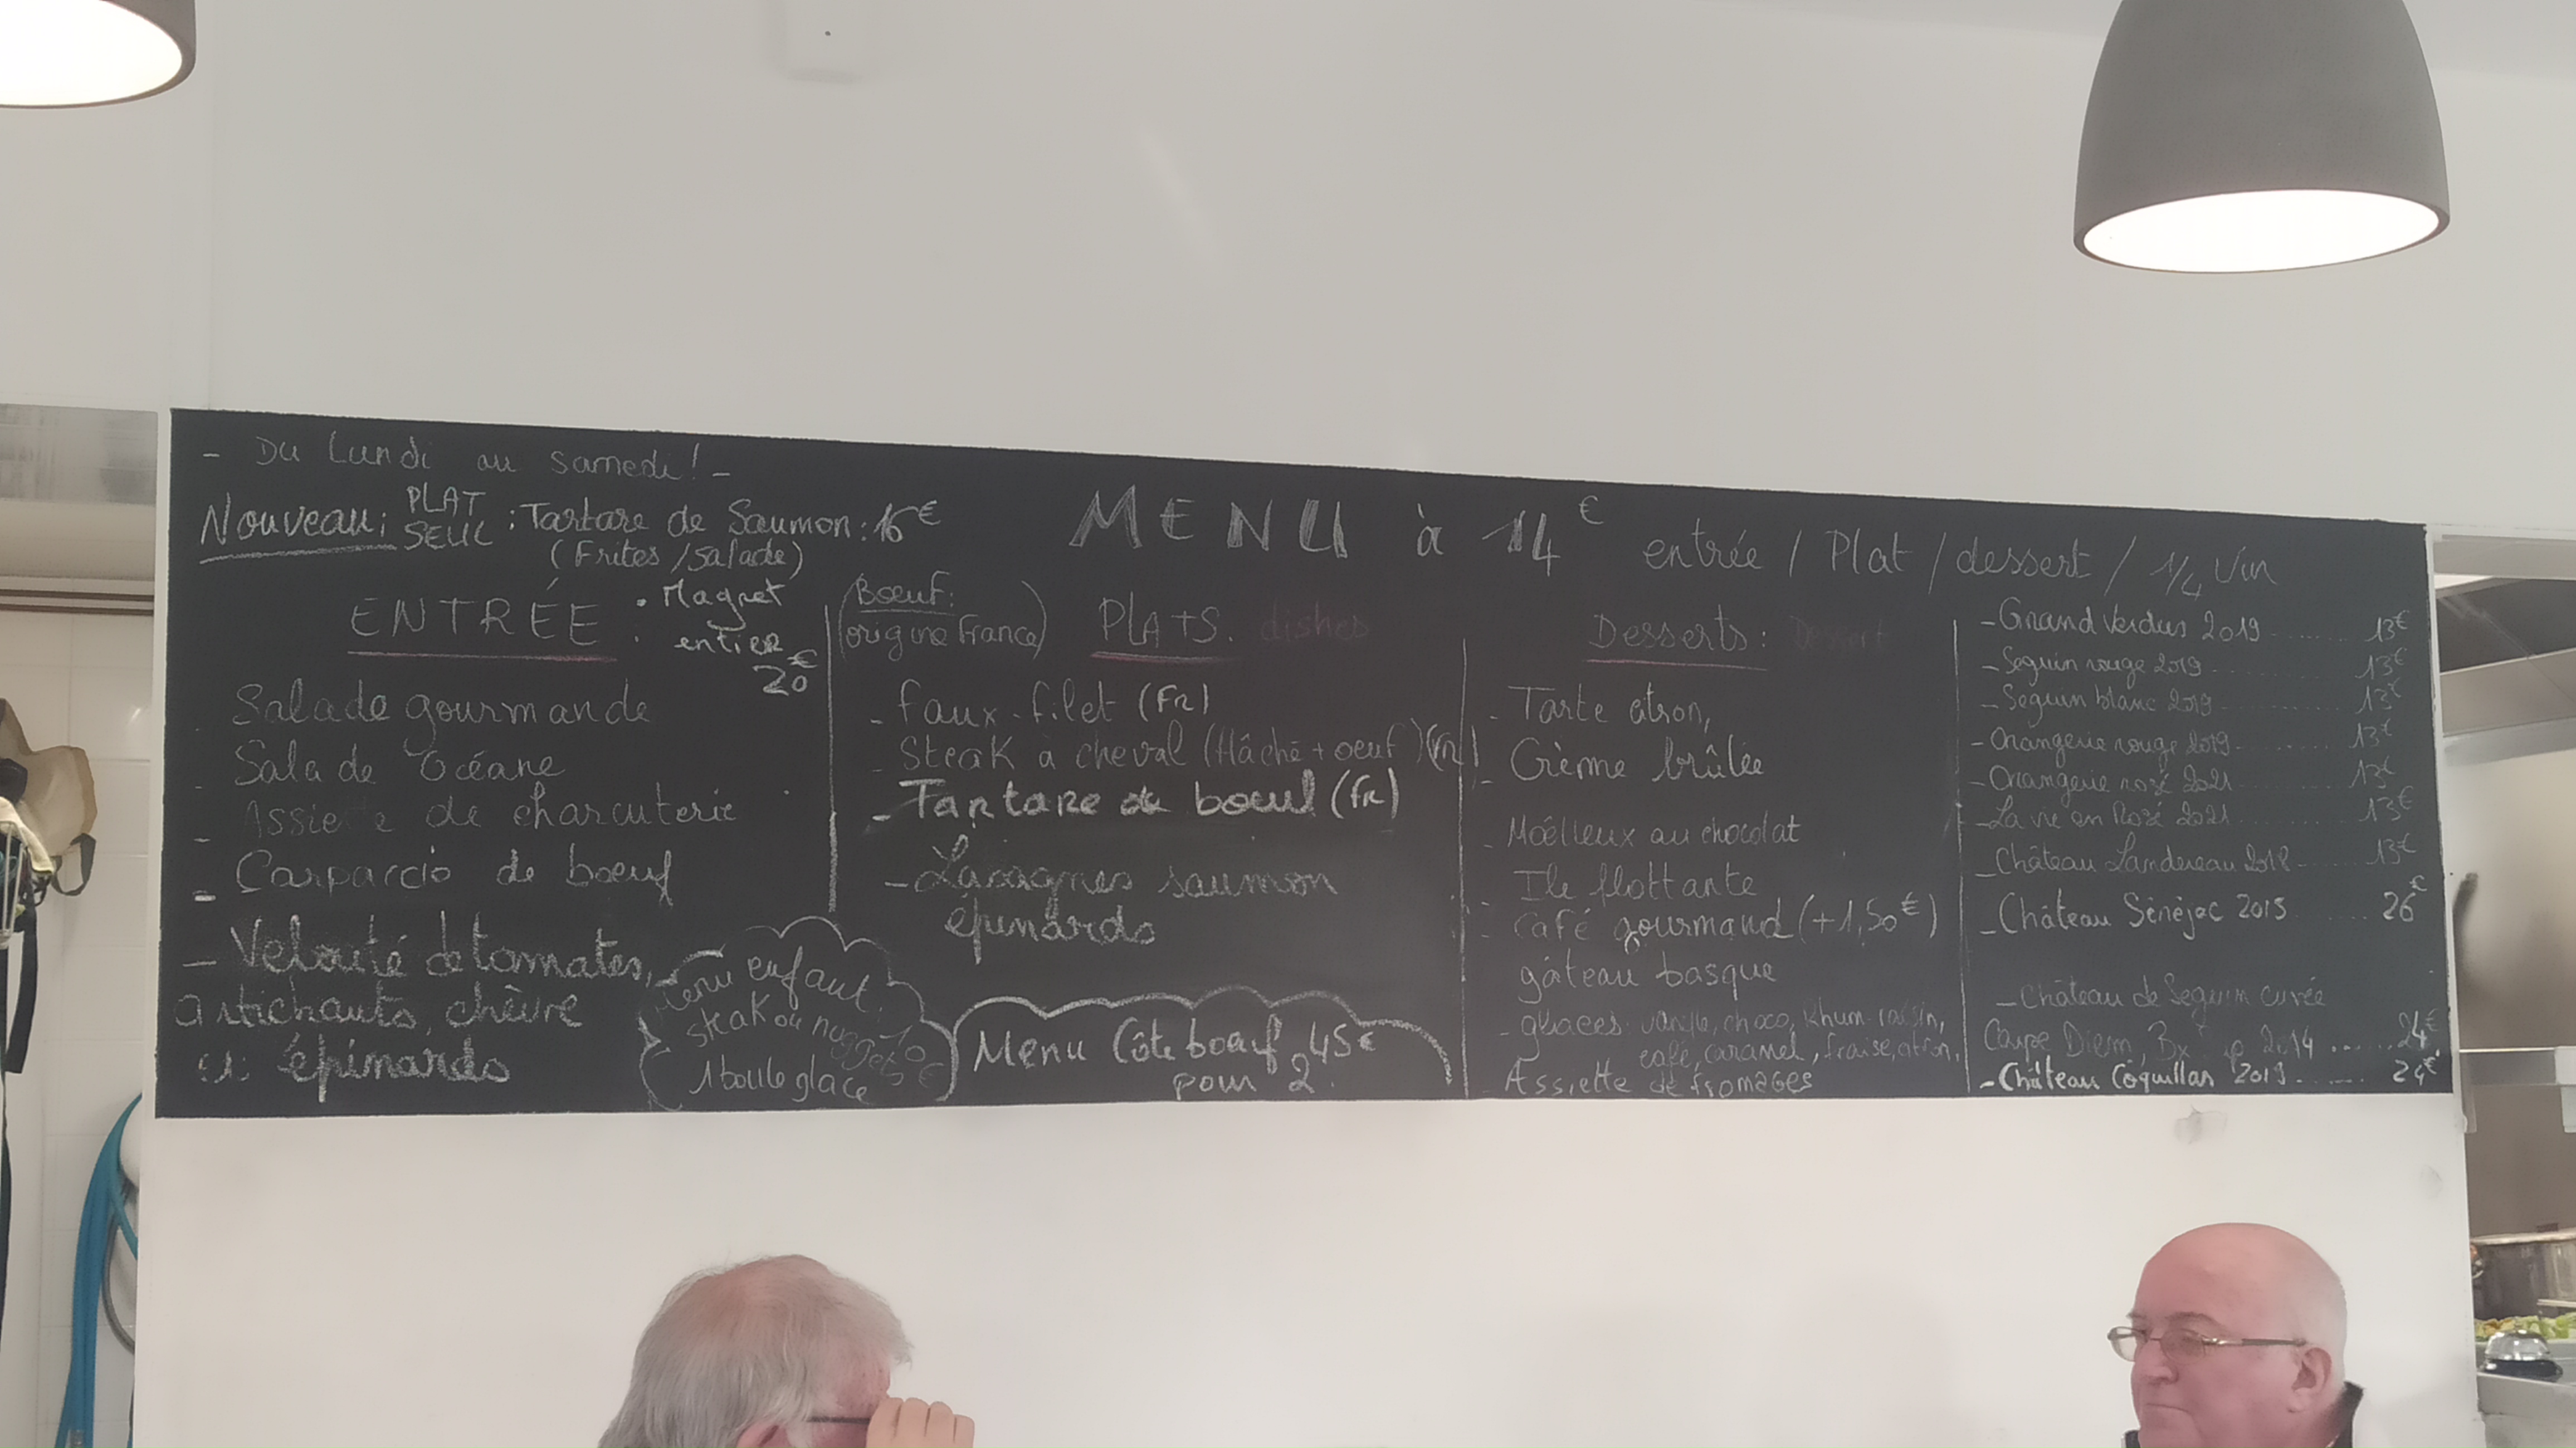 - Du Lundi au samedi! -
Nouveau: PLAT SEUL : Tartare de Saumon: 16€
(Frites/Salade)
MENU à 14€ entrée / Plat / dessert / 1/4 Vin
ENTRÉE
: Magret
entier
20€
- Salade gourmande
- Salade Océane
- Assiette de charcuterie
- Carpaccio de boeuf
- Velouté de tomates,
artichauts, chèvre
épinards
Menu enfant
steak ou nuggets
10€
1 boule glace
(Bœuf:
origine France)
PLATS. dishes
- faux-filet (FR)
- Steak à cheval (Hâché + oeuf) (FR)
- Tartare de boeuf (FR)
- Lasagnes saumon
épinards
Menu Côte boeuf 45€
pour 2
Desserts: Dessert
- Tarte citron,
- Crème brûlée
- Moëlleux au chocolat
- Ile flottante
- Café gourmand (+1,50€)
gâteau basque
- glaces vanille, choco, rhum-raisin,
café, caramel, fraise, citron,
- Assiette de fromages
- Grand Verdus 2019 ........ 13€
- Seguin rouge 2019 ........ 13€
- Seguin blanc 2019 ........ 13€
- Orangerie rouge 2019 ........ 13€
- Orangerie rosé 2021 ........ 13€
- La vie en Rosé 2021 ........ 13€
- Château Landereau 2018 ........ 13€
- Château Sénéjac 2015 ........ 26€
- Château de Seguin cuvée
Carpe Diem, Bx 2014 ...... 24€
- Château Coquillas 2019 ...... 24€